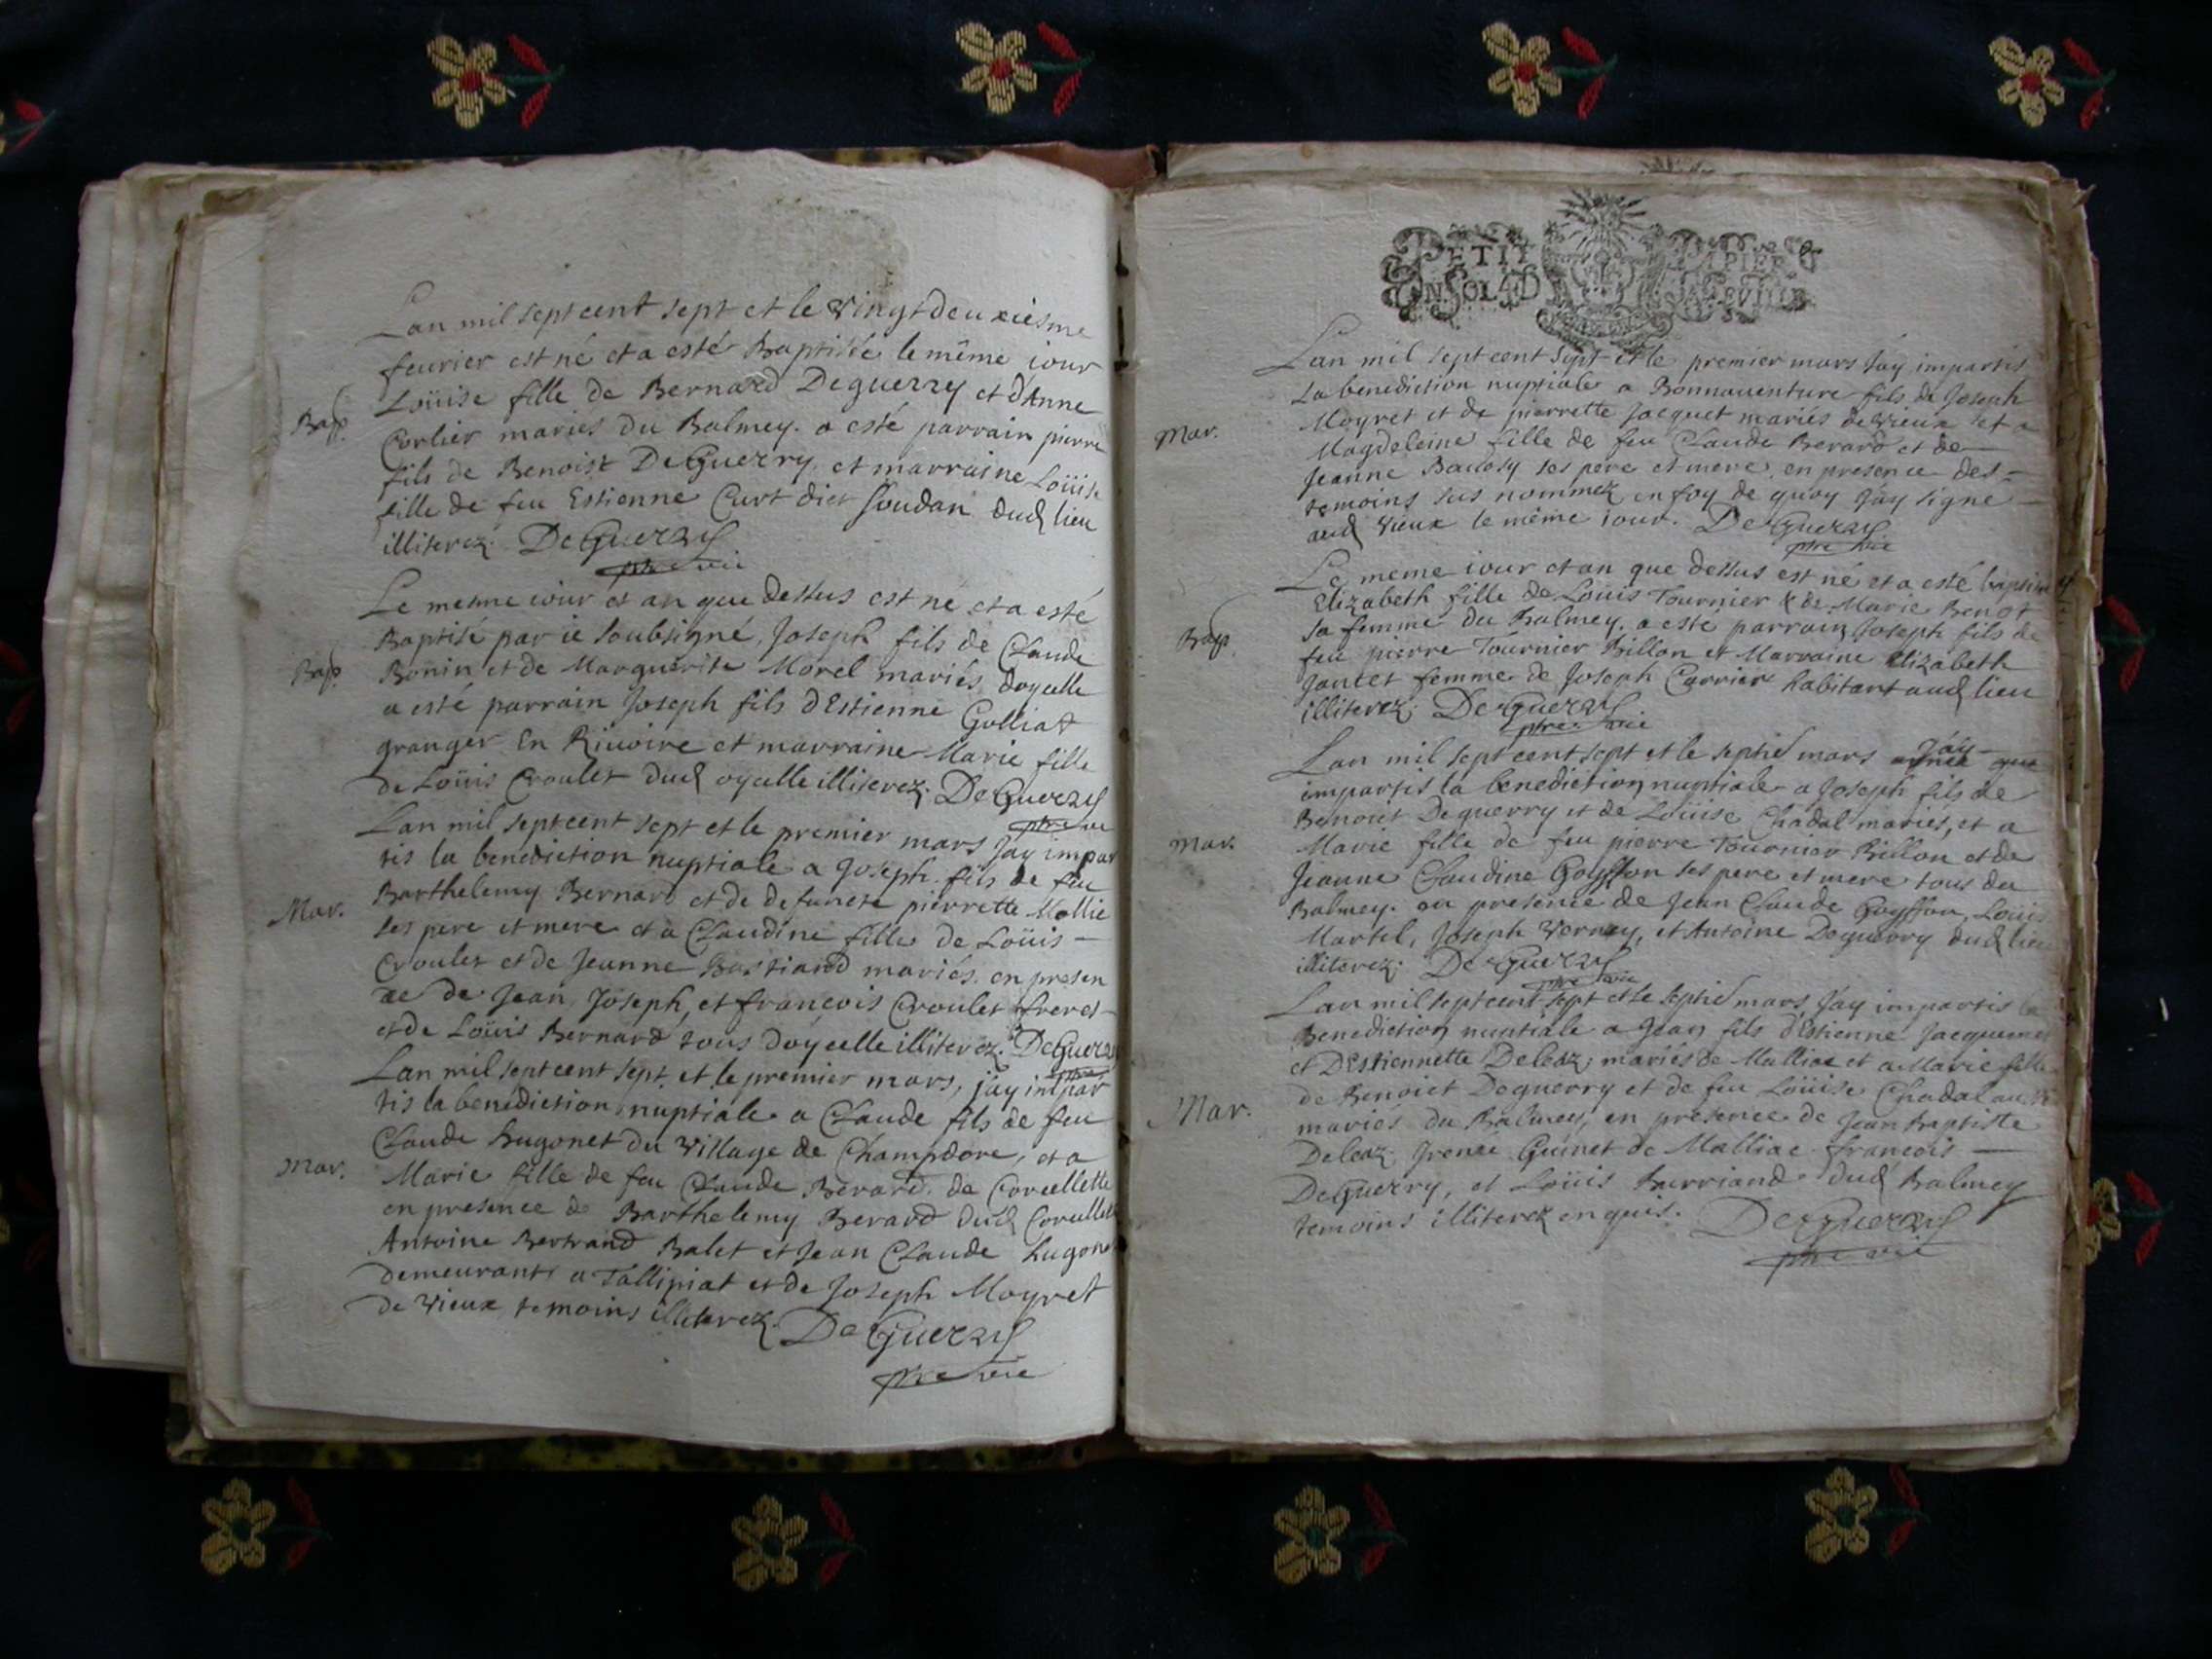 Lan mil sept cent sept et le vingt deuxiesme
feurier est né et a esté Baptisée le même iour
Bap.
Loüise fille de Bernard Deguerry et d'Anne
Corlier mariés du Balmey. a esté parrain pierre
fils de Benoist DeGuerry, et marraine Loüise
fille de feu Estienne Curt dict Soudan dud lieu
illiterez. DeGuerry
ptre vic
Le mesme iour et an que dessus est né et a esté
Baptisé par ie soubsigné, Joseph fils de Claude
Bap.
Bonin et de Marguerite Morel mariés doycelle
a esté parrain Joseph fils d'Estienne Golliat
granger En Riuoire et marraine Marie fille
de Loüis Croulet dud oycelle illiterez. DeGuerry
ptre vic
Lan mil sept cent sept et le premier mars Jay impar
tis la benediction nuptiale a Joseph fils de feu
Mar.
Barthelemy Bernard et de defuncte pierrette Mollie
ses pere et mere et a Claudine fille de Loüis
Croulet et de Jeanne Bastiand mariés. en presen
ce de Jean, Joseph, et françois Croulet freres
et de Loüis Bernard tous doycelle illiterez. DeGuerry
Lan mil sept cent sept. et le premier mars, j'ay impar
tis la benediction nuptiale a Claude fils de feu
Claude hugonet du village de Champdore, et a
Mar.
Marie fille de feu Claude Berard de Corcellette
en presence de Barthelemy Berard dud Corcellette
Antoine Bertrand Balet et Jean Claude hugonet
demeurants a Tallipiat et de Joseph Moyret
de vieux temoins illiterez. DeGuerry
ptre vic
PETIT PAPIER
UN SOL 4D LA FEVILLE
Lan mil sept cent sept et le premier mars Jay impartis
La benediction nuptiale a Bonnauenture fils de Joseph
Mar.
Moyret et de pierrette Jacquet mariés de vieux et a
Magdeleine fille de feu Claude Berard et de
Jeanne ses pere et mere, en presence des
temoins sus nommez en foy de quoy J'ay signé
aud vieux le même iour. DeGuerry
ptre vic
Le meme iour et an que dessus est né et a esté baptisé
Elizabeth fille de Loüis Tournier & de Marie Benoit
Bap.
sa femme du Balmey. a esté parrain Joseph fils de
feu pierre Tournier Billon et Marraine Elizabeth
Jantet femme de Joseph Carrier habitant aud lieu
illiterez. DeGuerry
ptre vic
Lan mil sept cent sept et le septie mars Jay
impartis la benediction nuptiale a Joseph fils de
Benoist Deguerry et de Loüise Chadal mariés, et a
Mar.
Marie fille de feu pierre Tournier Billon et de
Jeanne Claudine Goyffon ses pere et mere tous du
Balmey. en presence de Jean Claude Goyffon, Loüis
Martel, Joseph Verney, et Antoine Deguerry dud lieu
illiterez. DeGuerry
ptre vic
Lan mil sept cent sept et le septie mars J'ay impartis la
Benediction nuptiale a Jean fils d'Estienne Jacquemet
et D'Estiennette Deleaz, mariés de Malliac et a Marie fille
de Benoict Deguerry et de feu Loüise Chadal
Mar.
mariés du Balmey, en presence de Jean baptiste
Deleaz, Irenée Guinet de Malliac françois
DeGuerry, et Loüis burriand dud Balmey
temoins illiterez enquis. DeGuerry
ptre vic